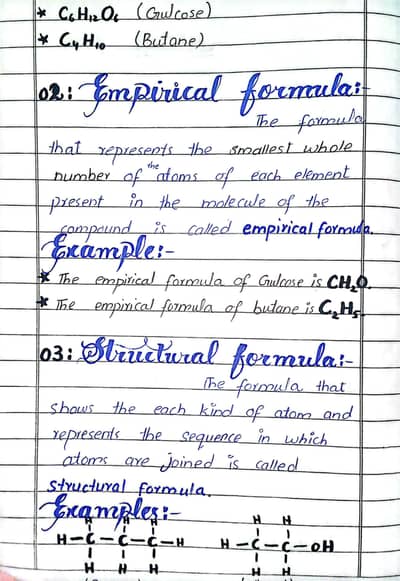 * C6H12O6 (Gulcose)
* C4H10 (Butane)
02: Empirical formula:-
The formula
that represents the smallest whole
number of the atoms of each element
present in the molecule of the
compound is called empirical formula.
Example:-
* The empirical formula of Gulcose is CH2O.
* The empirical formula of butane is C2H5.
03: Structural formula:-
The formula that
shows the each kind of atom and
represents the sequence in which
atoms are joined is called
structural formula.
Examples:-
H H H H H
H-C-C-C-H H-C-C-OH
H H H H H